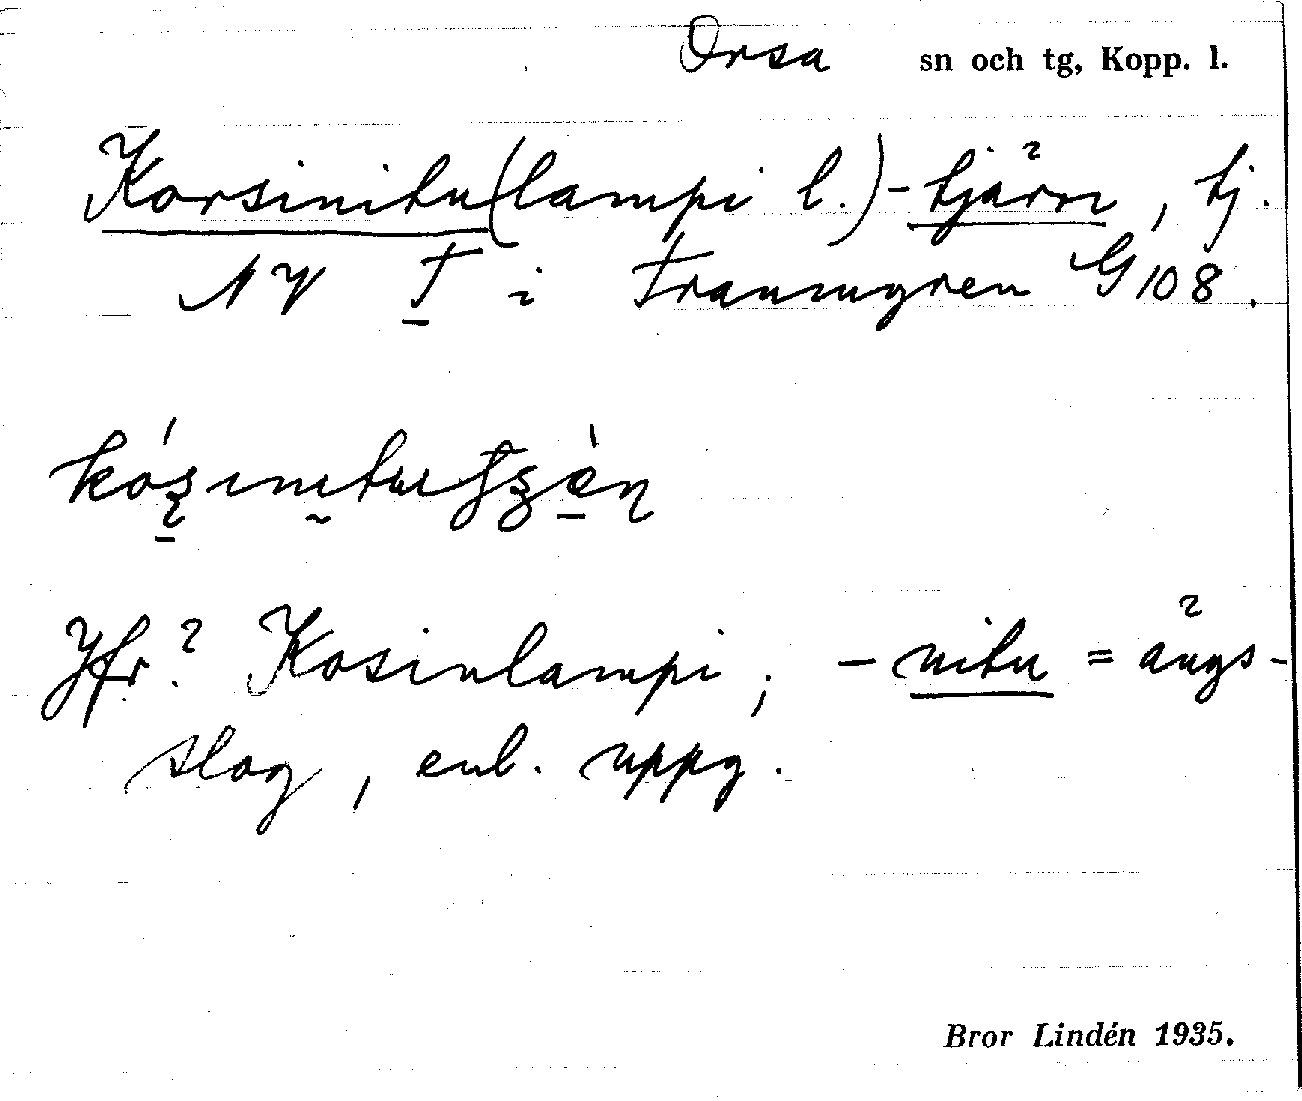 Orsa sn och tg, Kopp. l.
Korsinitu(lampi l.)-tjärn, tj.
NV T i Tranmgren G108.
Jfr? Kosinlampi; -nitu = ängs-
slog, enl. uppg.
Bror Lindén 1935.